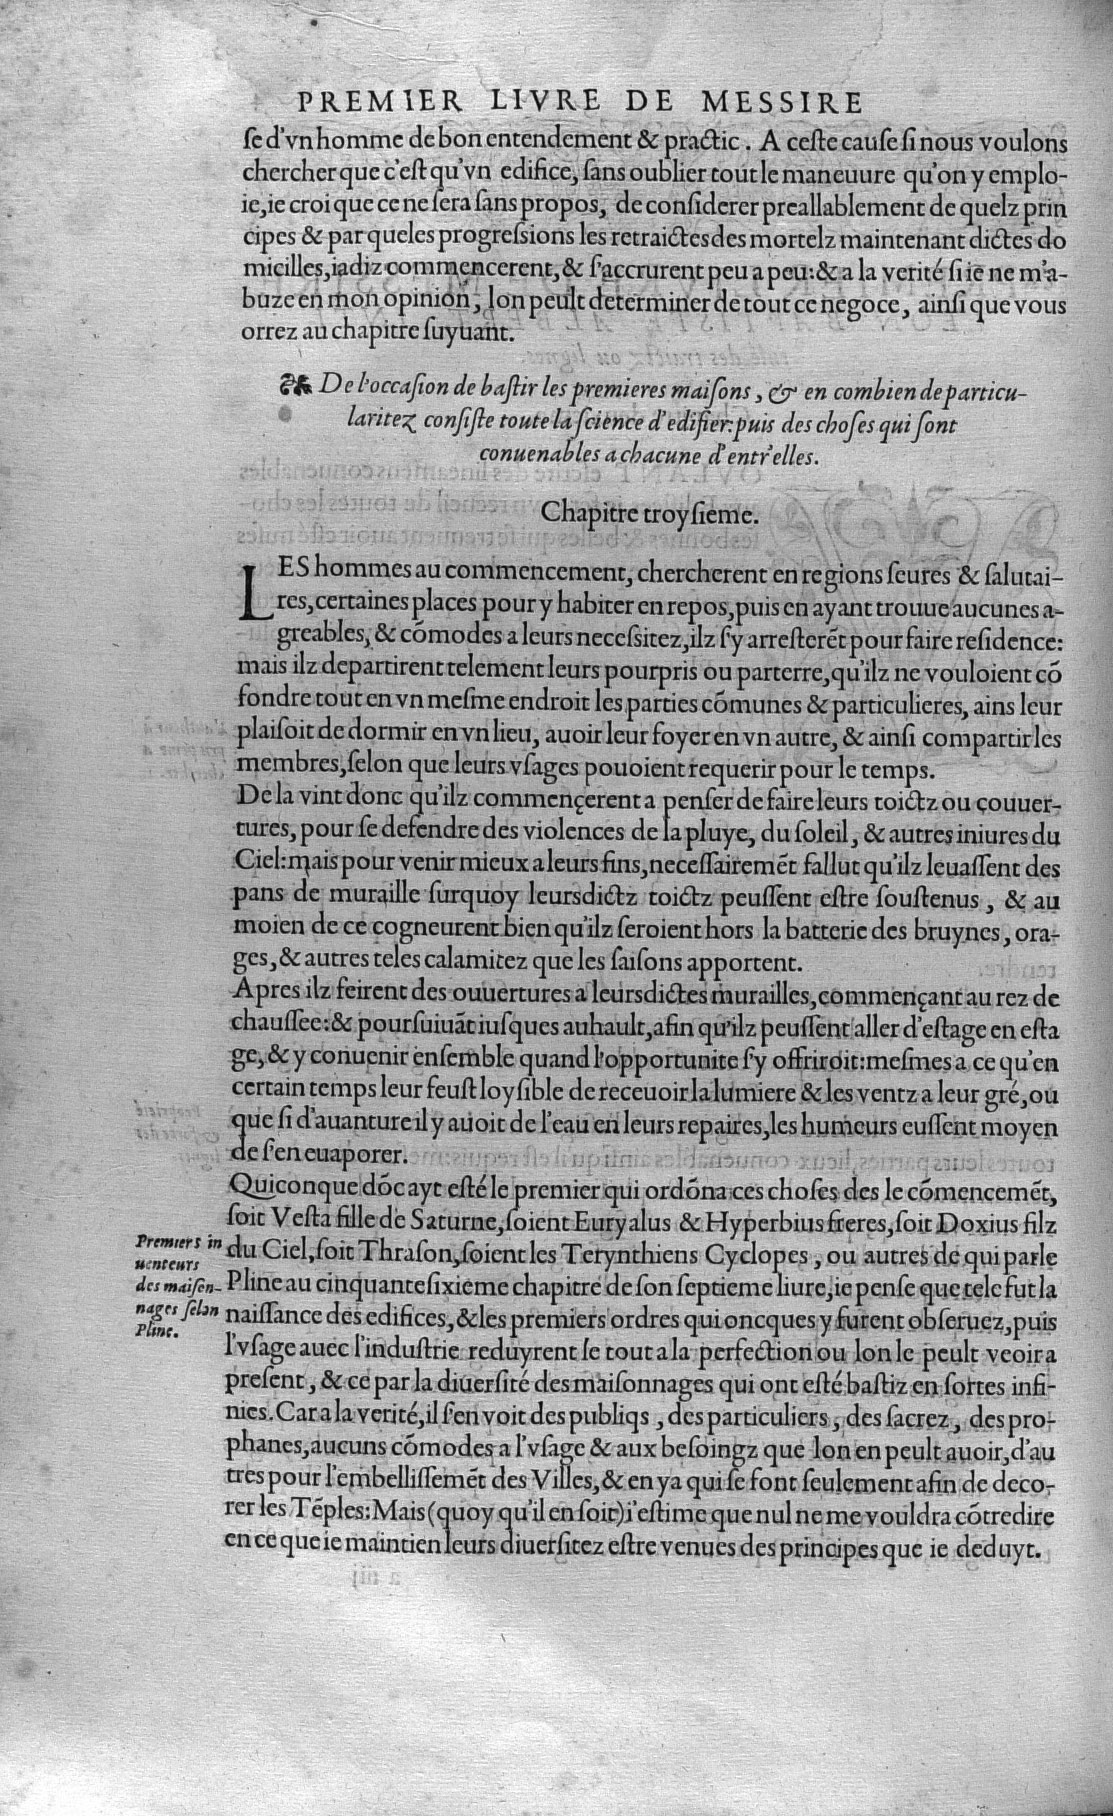 PREMIER LIVRE DE MESSIRE
ſe d'vn homme de bon entendement & practic. A ceſte cauſe ſi nous voulons
chercher que c'eſt qu'vn edifice, ſans oublier tout le maneuure qu'on y emplo-
ie, ie croi que ce ne ſera ſans propos, de conſiderer preallablement de quelz prin
cipes & par queles progreſsions les retraictes des mortelz maintenant dictes do
micilles, iadiz commencerent, & ſ'accrurent peu a peu: & a la verité ſi ie ne m'a-
buze en mon opinion, lon peult determiner de tout ce negoce, ainſi que vous
orrez au chapitre ſuyuant.
De l'occaſion de baſtir les premieres maiſons, & en combien de particu-
laritez conſiſte toute la ſcience d'edifier: puis des choſes qui ſont
conuenables a chacune d'entr'elles.
Chapitre troyſieme.
LES hommes au commencement, chercherent en regions ſeures & ſalutai-
res, certaines places pour y habiter en repos, puis en ayant trouue aucunes a-
greables, & cõmodes a leurs neceſsitez, ilz ſ'y arreſterẽt pour faire reſidence:
mais ilz departirent telement leurs pourpris ou parterre, qu'ilz ne vouloient cõ
fondre tout en vn meſme endroit les parties cõmunes & particulieres, ains leur
plaiſoit de dormir en vn lieu, auoir leur foyer en vn autre, & ainſi compartir les
membres, ſelon que leurs vſages pouoient requerir pour le temps.
De la vint donc qu'ilz commençerent a penſer de faire leurs toictz ou couuer-
tures, pour ſe defendre des violences de la pluye, du ſoleil, & autres iniures du
Ciel: mais pour venir mieux a leurs fins, neceſſairemẽt fallut qu'ilz leuaſſent des
pans de muraille ſurquoy leursdictz toictz peuſſent eſtre ſouſtenus, & au
moien de ce cogneurent bien qu'ilz ſeroient hors la batterie des bruynes, ora-
ges, & autres teles calamitez que les ſaiſons apportent.
Apres ilz feirent des ouuertures a leursdictes murailles, commençant au rez de
chauſſee: & pourſuiuãt iuſques au hault, afin qu'ilz peuſſent aller d'eſtage en eſta
ge, & y conuenir enſemble quand l'opportunite ſ'y offriroit: meſmes a ce qu'en
certain temps leur feuſt loyſible de receuoir la lumiere & les ventz a leur gré, ou
que ſi d'auanture il y auoit de l'eau en leurs repaires, les humeurs euſſent moyen
de ſ'en euaporer.
Quiconque dõc ayt eſté le premier qui ordõna ces choſes des le cõmencemẽt,
ſoit Veſta fille de Saturne, ſoient Euryalus & Hyperbius freres, ſoit Doxius filz
du Ciel, ſoit Thraſon, ſoient les Terynthiens Cyclopes, ou autres de qui parle
Pline au cinquanteſixieme chapitre de ſon ſeptieme liure, ie penſe que tele fut la
naiſſance des edifices, & les premiers ordres qui oncques y furent obſeruez, puis
l'vſage auec l'induſtrie reduyrent le tout a la perfection ou lon le peult veoir a
preſent, & ce par la diuerſité des maiſonnages qui ont eſté baſtiz en ſortes infi-
nies. Car a la verité, il ſ'en voit des publiqs, des particuliers, des ſacrez, des pro-
phanes, aucuns cõmodes a l'vſage & aux beſoingz que lon en peult auoir, d'au
tres pour l'embelliſſemẽt des Villes, & en ya qui ſe font ſeulement afin de deco-
rer les Tẽples: Mais (quoy qu'il en ſoit) i'eſtime que nul ne me vouldra cõtredire
en ce que ie maintien leurs diuerſitez eſtre venues des principes que ie deduyt.
Premiers in
uenteurs
des maiſon-
nages ſelon
Pline.